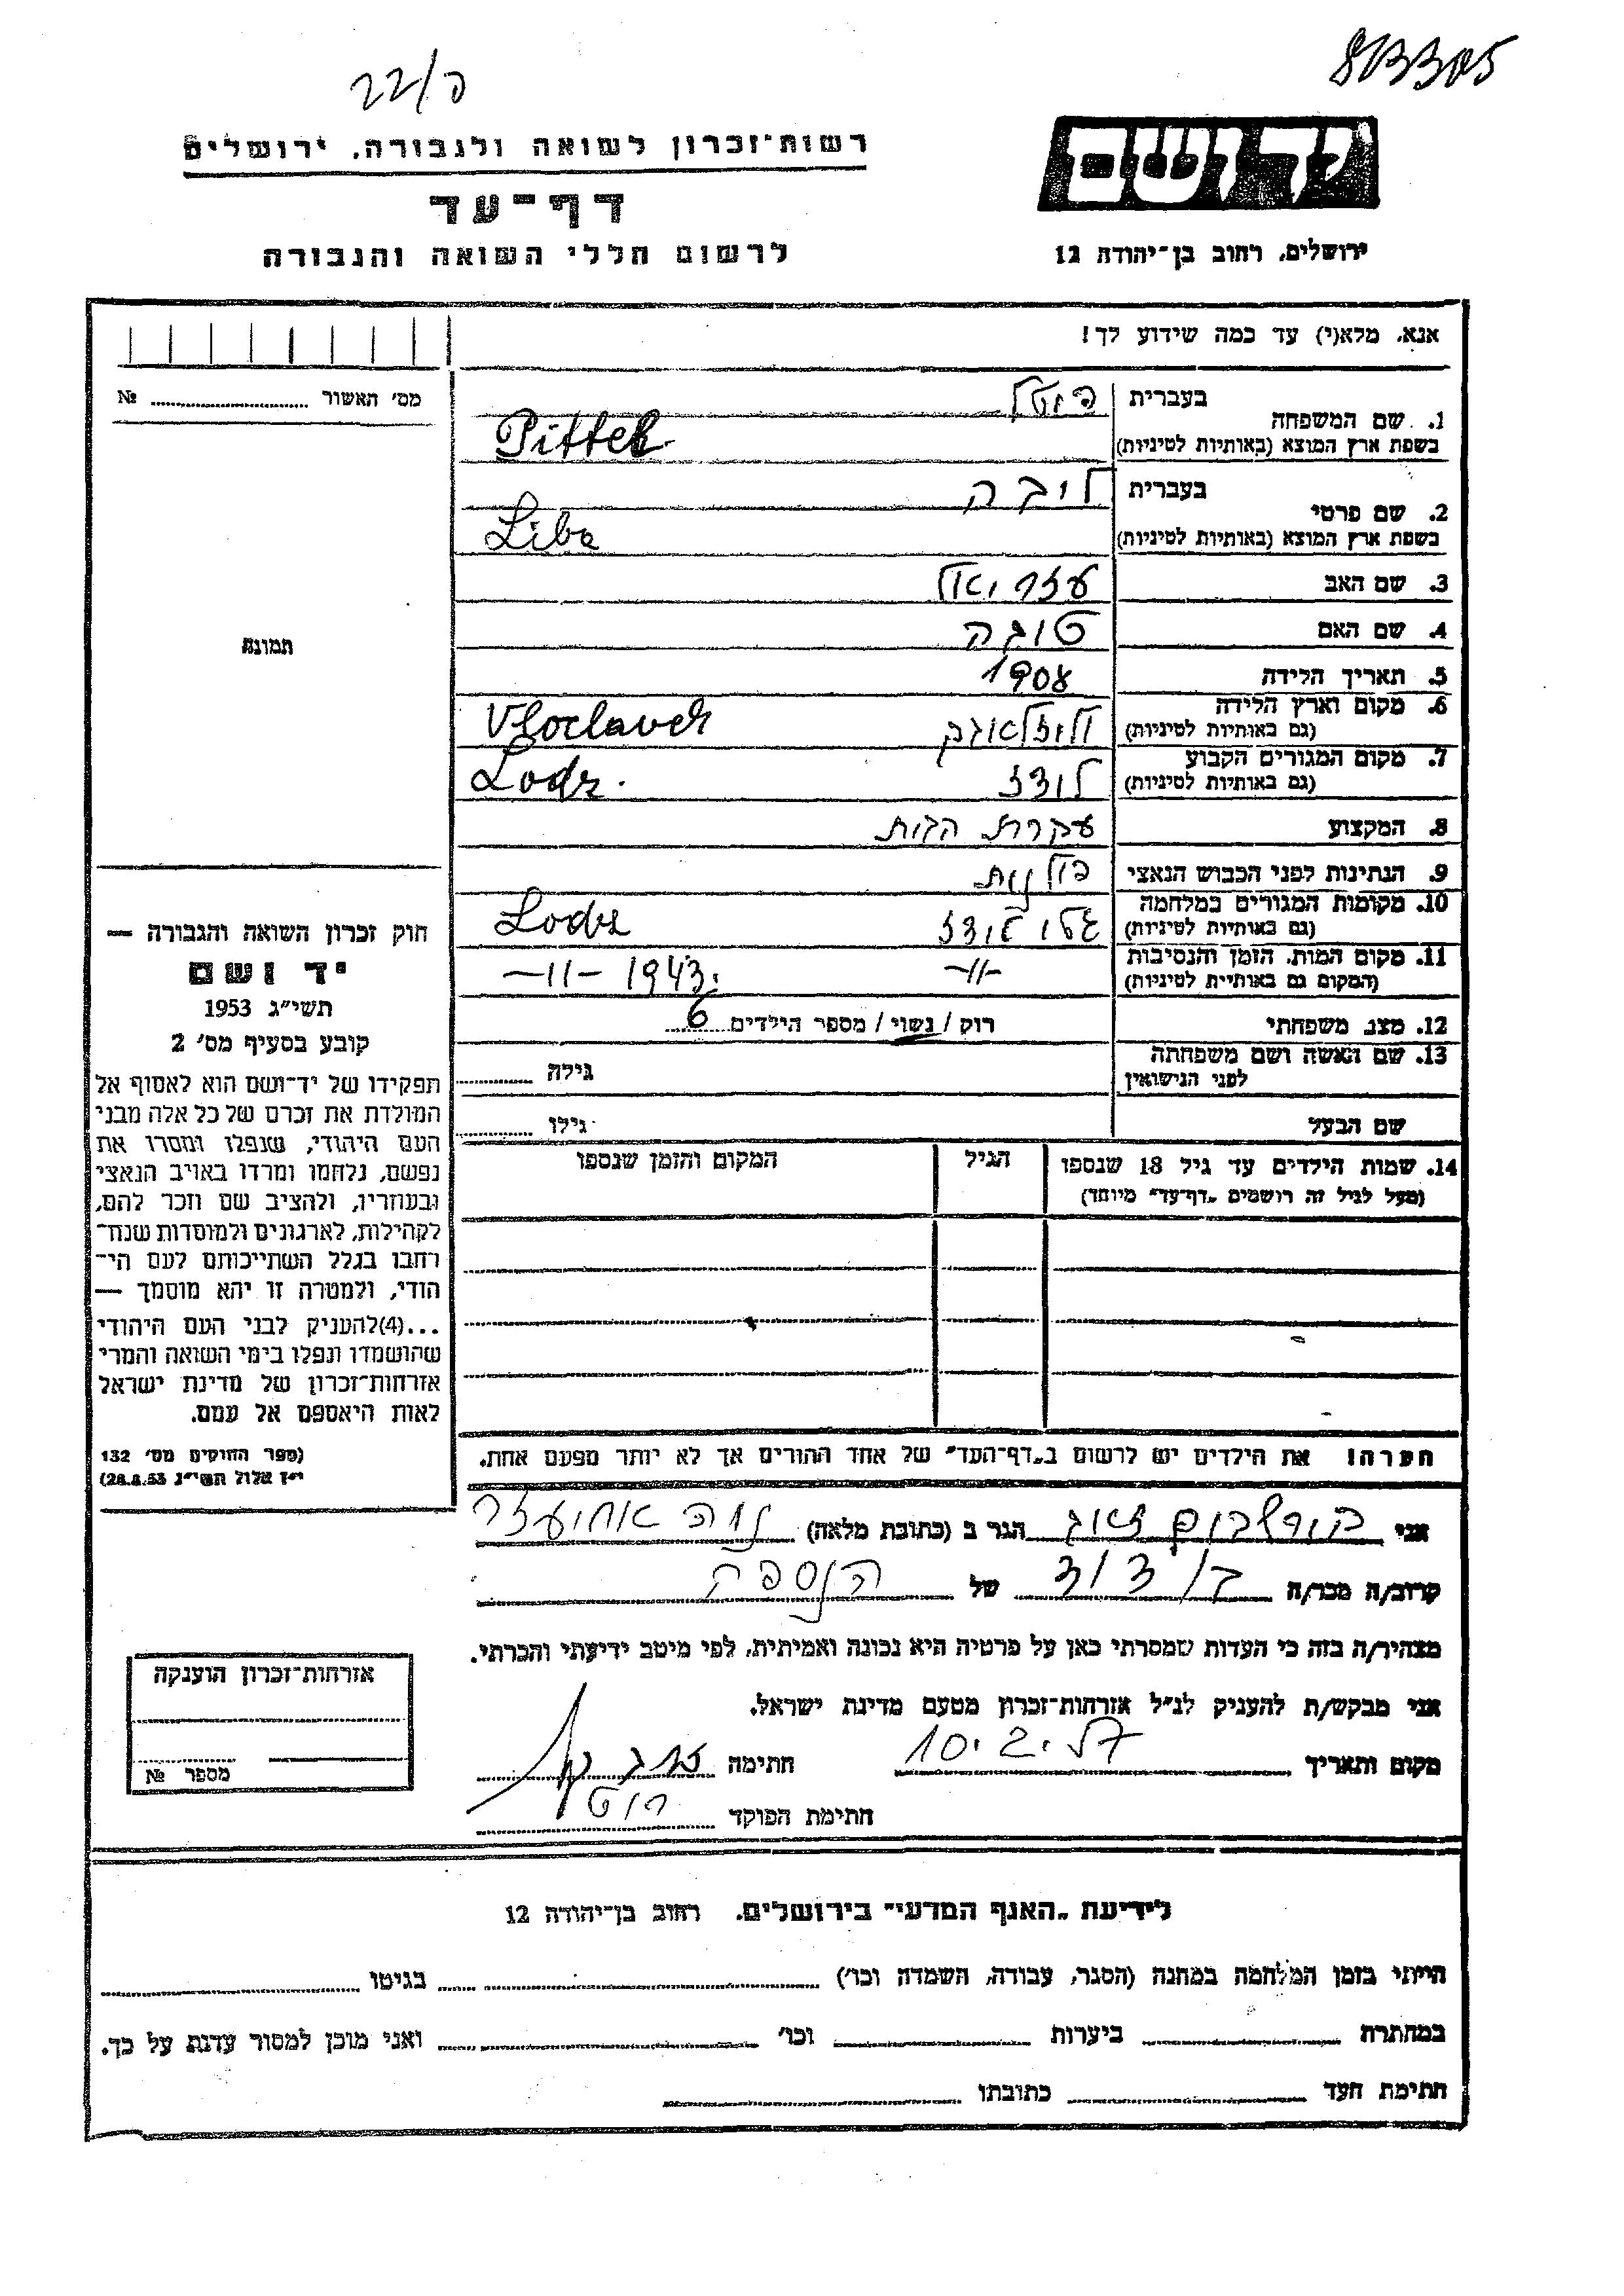 פ/22
813305
יד ושם
רשות־זכרון לשואה ולגבורה, ירושלים
דף־עד
לרשום חללי השואה והגבורה
ירושלים, רחוב בן־יהודה 12
אנא, מלא(י) עד כמה שידוע לך!
מס' האשור № 
1. שם המשפחה
בעברית פיטל
בשפת ארץ המוצא (באותיות לטיניות) Pittel
2. שם פרטי
בעברית ליבה
בשפת ארץ המוצא (באותיות לטיניות) Liba
3. שם האב עזריאל
4. שם האם טובה
5. תאריך הלידה 1908
6. מקום וארץ הלידה
(גם באותיות לטיניות) Vloclavek
7. מקום המגורים הקבוע
(גם באותיות לטיניות) לודז Lodz.
8. המקצוע עקרת הבית
9. הנתינות לפני הכבוש הנאצי פולנית
10. מקומות המגורים במלחמה
(גם באותיות לטיניות) גטו לודז Lodz
11. מקום המות, הזמן והנסיבות
(המקום גם באותיות לטיניות) -11- -11- 1943.
12. מצב משפחתי רוק / נשוי / מספר הילדים 6
13. שם האשה ושם משפחתה
לפני הנישואין גילה
שם הבעל גילו
14. שמות הילדים עד גיל 18 שנספו
(מעל לגיל זה רושמים „דף־עד" מיוחד)
הגיל
המקום והזמן שנספו
תמונה
חוק זכרון השואה והגבורה —
יד ושם
תשי"ג 1953
קובע בסעיף מס' 2
תפקידו של יד־ושם הוא לאסוף אל
המולדת את זכרם של כל אלה מבני
העם היהודי, שנפלו ומסרו את
נפשם, נלחמו ומרדו באויב הנאצי
ובעוזריו, ולהציב שם וזכר להם,
לקהילות, לארגונים ולמוסדות שנח־
רבו בגלל השתייכותם לעם הי־
הודי, ולמטרה זו יהא מוסמך —
...(4)להעניק לבני העם היהודי
שהושמדו ונפלו בימי השואה והמרי
אזרחות־זכרון של מדינת ישראל
לאות היאספם אל עמם.
(ספר החוקים מס' 132
י"ז אלול תשי"ג 28.8.53)
הערה! את הילדים יש לרשום ב„דף־העד" של אחד ההורים אך לא יותר מפעם אחת.
אני בורשבוים זאב הגר ב (כתובת מלאה) נוה אחיעזר
קרוב/ה מכר/ה בן דוד של הנספה
מצהיר/ה בזה כי העדות שמסרתי כאן על פרטיה היא נכונה ואמיתית, לפי מיטב ידיעתי והכרתי.
אני מבקש/ת להעניק לנ"ל אזרחות־זכרון מטעם מדינת ישראל.
מקום ותאריך 10.2.57 חתימה
חתימת הפוקד
אזרחות־זכרון הוענקה
מספר №
לידיעת „האגף המדעי" בירושלים, רחוב בן־יהודה 12
הייתי בזמן המלחמה במחנה (הסגר, עבודה, השמדה וכו') בגיטו
במחתרת ביערות וכו' ואני מוכן למסור עדות על כך.
חתימת העד כתובתו